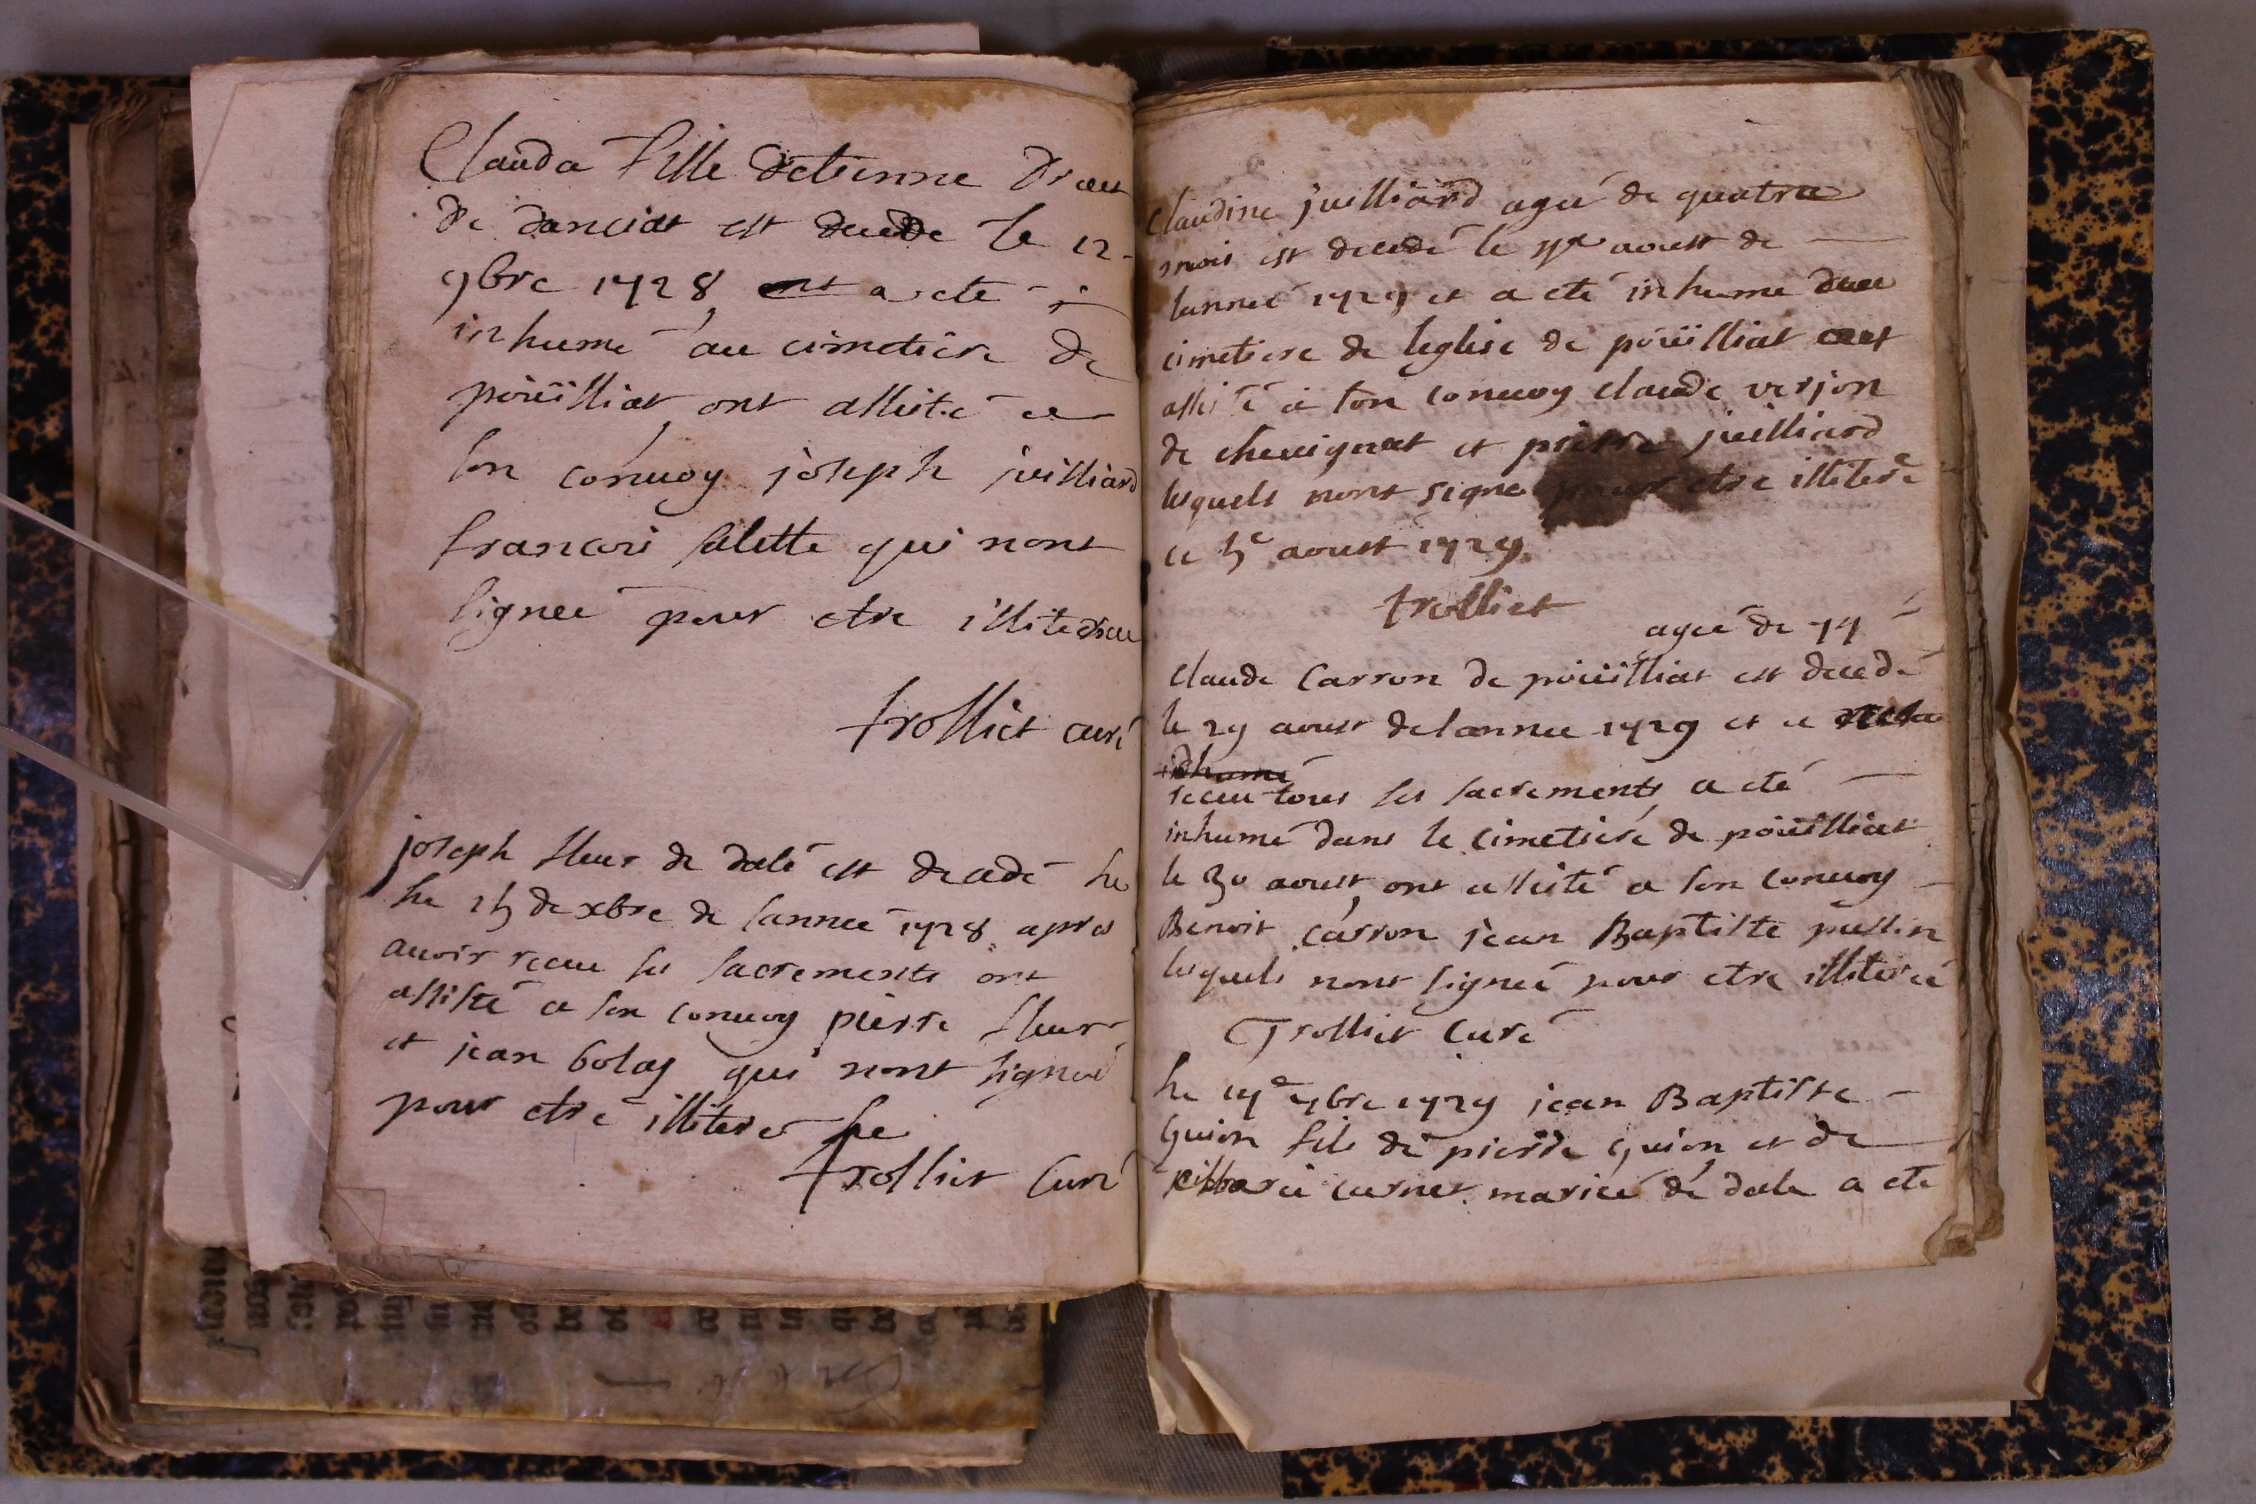 Clauda fille detienne
de danciat est decede le 12
9bre 1728 a ete
inhumé au cimetiere de
poüilliat ont assisté a
son convoy joseph juilliard
francois salette qui nont
signeé pour etre illiteré
trolliet curé
joseph fleur de dalé est decedé le
le 15 de xbre de lanneé 1728 apres
avoir receu les sacrements ont
assisté a son convoy pierre fleur
et jean bolay qui nont signeé
pour etre illiteres
trolliet Curé
Claudine juilliard ageé de quatre
mois est decedé le aoust de
lanneé 1729 et a eté inhumé
cimetiere de leglise de poüilliat
assisté a son convoy claude verjon
de chevignat et pierre juilliard
lesquels nont signe pour etre illiteré
ce 5e aoust 1729
trolliet
ageé de 74
claude Carron de poüilliat est decedé
le 29 aoust de lanneé 1729 et a
inhumé
receu tous ses sacrements a eté
inhumé dans le cimetiere de poüilliat
le 30 aoust ont assisté a son convoy
Benoit Carron jean Baptiste
lesquels nont signeé pour etre illitereé
Trolliet Curé
le 9bre 1729 jean Baptiste
guion fils de pierre guion et de
marieé de dale a ete